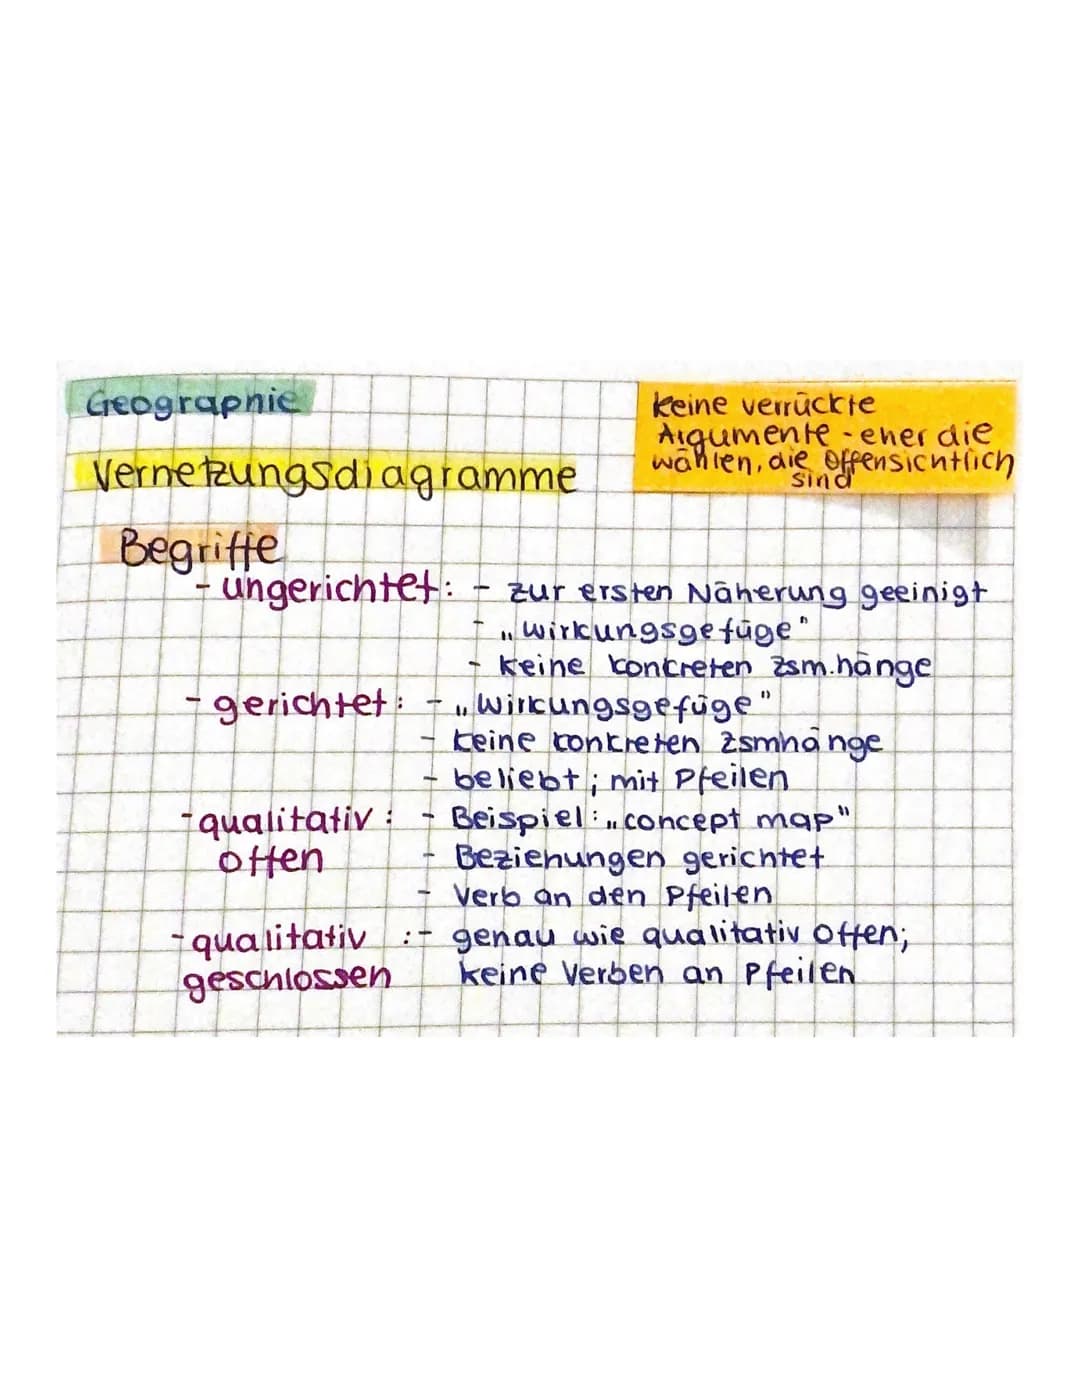 Geographie
keine verrückte
Argumente - eher die
wählen, die offensichtlich
sind
Vernetzungsdiagramme
Begriffe
- ungerichtet: - zur ersten Näherung geeinigt
- „Wirkungsgefüge"
- keine konkreten Zsm.hänge
- gerichtet: - „Wirkungsgefüge"
- keine konkreten Zsmhänge
- beliebt; mit Pfeilen
- qualitativ : - Beispiel: „concept map"
offen - Beziehungen gerichtet
- Verb an den Pfeilen
- qualitativ :- genau wie qualitativ offen;
geschlossen keine Verben an Pfeilen